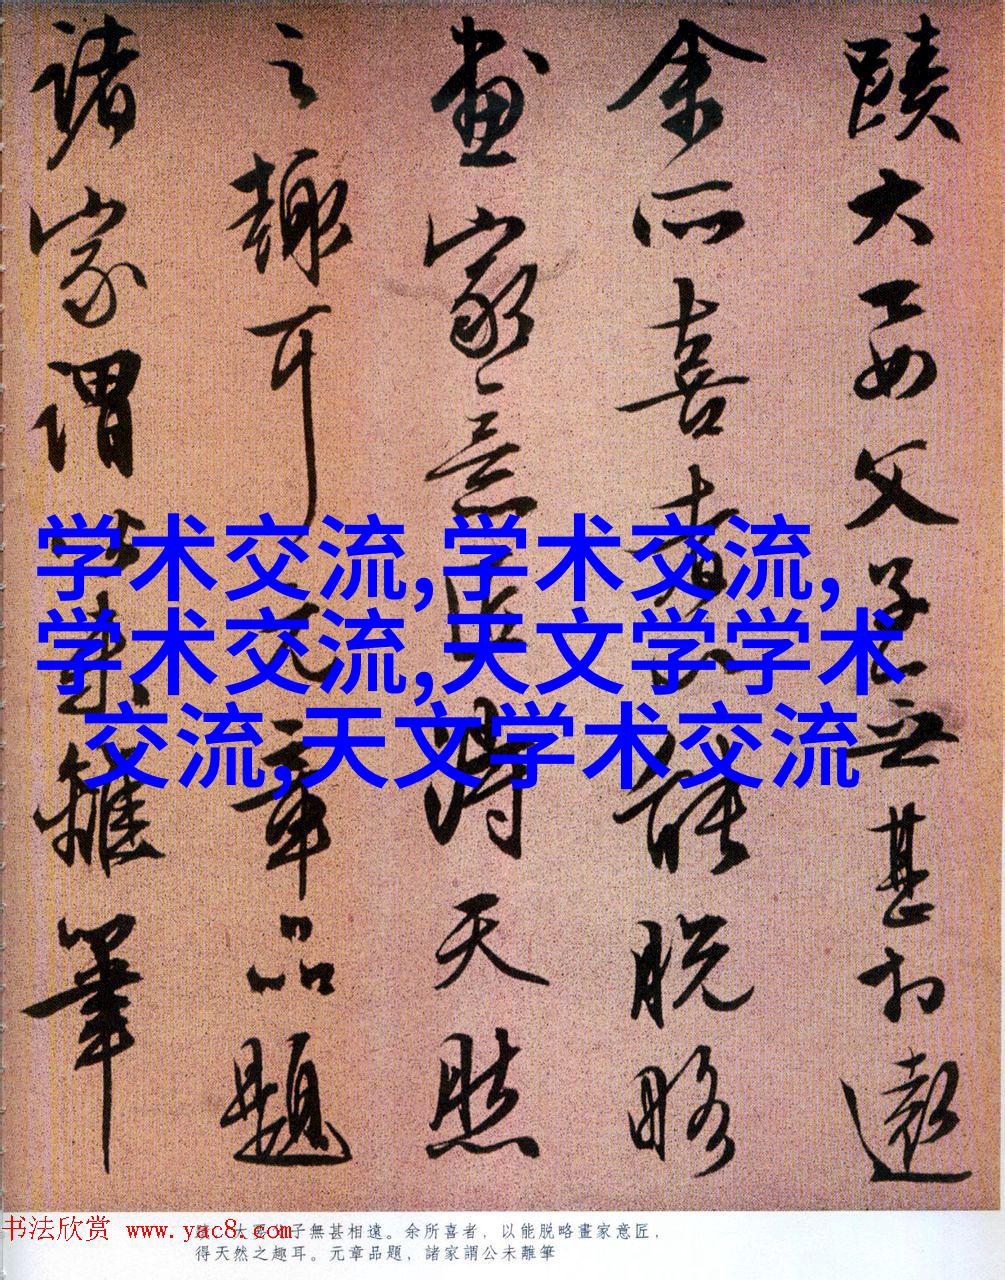 蹟大要父子無甚相遠
余所喜者以能脱略
畫家意匠得天然
之趣耳元章品題
諸家謂公未離筆
学术交流,学术交流,
学术交流,天文学学术
交流,天文学术交流
书法欣赏 www.yac8.com
大要父子無甚相遠。余所喜者，以能脱略畫家意匠，
得天然之趣耳。元章品題，諸家謂公未離筆